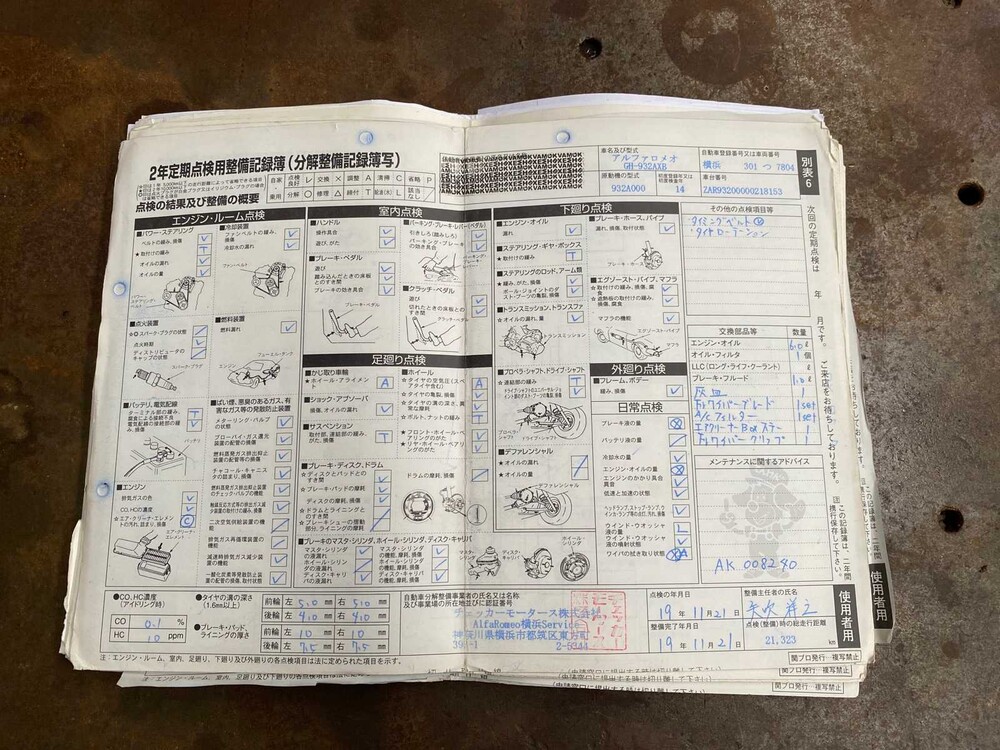 2年定期点検用整備記録簿(分解整備記録簿写)
点検の結果及び整備の概要
点検良好 レ 交換 × 調整 A 清掃 C 省略 P
分解 ○ 修理 △ 締付 T 給油(水) L 該当なし /
車名及び型式
アルファロメオ
GH-932AXB
自動車登録番号又は車両番号
横浜 301 つ 7804
原動機の型式
932A000
初度登録年又は
14
車台番号
ZAR93200000218153
別表6
エンジン・ルーム点検
■パワー・ステアリング
ベルトの緩み、損傷
★取付けの緩み
オイルの漏れ
オイルの量
パワー・ステアリング・ベルト
■冷却装置
ファンベルトの緩み、損傷
冷却水の漏れ
ファン・ベルト
■点火装置
★✪スパーク・プラグの状態
点火時期
ディストリビュータのキャップの状態
スパーク・プラグ
■燃料装置
燃料漏れ
フューエル・タンク
エンジン
■バッテリ、電気配線
ターミナル部の緩み、腐食による接続不良
電気配線の接続部の緩み、損傷
バッテリ
■エンジン
排気ガスの色
CO,HCの濃度
★エア・クリーナ・エレメントの汚れ、詰まり、損傷
エア・クリーナ・エレメント
■ばい煙、悪臭のあるガス、有害なガス等の発散防止装置
メターリング・バルブの状態
ブローバイ・ガス還元装置の配管の損傷
燃料蒸発ガス排出抑止装置の配管等の損傷
チャコール・キャニスタの詰まり、損傷
燃料蒸発ガス排出抑止装置のチェックバルブの機能
触媒反応方式等の排出ガス減少装置の取付けの緩み、損傷
二次空気供給装置の機能
排気ガス再循環装置の機能
減速時排気ガス減少装置の機能
一酸化炭素等発散防止装置の配管の損傷、取付状態
室内点検
■ハンドル
操作具合
遊び、がた
■ブレーキ・ペダル
遊び
踏み込んだときの床板とのすき間
ブレーキの効き具合
ブレーキ・ペダル
■パーキング・ブレーキ・レバー(ペダル)
引きしろ(踏みしろ)
パーキング・ブレーキの効き具合
■クラッチ・ペダル
遊び
切れたときの床板とのすき間
クラッチ・ペダル
足廻り点検
■かじ取り車輪
★ホイール・アライメント A
■ショック・アブソーバ
損傷、オイルの漏れ
■サスペンション
取付部、連結部の緩み、がた、損傷 T
■ホイール
★タイヤの空気圧(スペアタイヤ含む) A
★タイヤの亀裂、損傷
★タイヤの溝の深さ、異常な摩耗
★ボルト、ナットの緩み T
★フロント・ホイール・ベアリングのがた
★リヤ・ホイール・ベアリングのがた
■ブレーキ・ディスク、ドラム
★ディスクとパッドとのすき間
★ブレーキ・パッドの摩耗
ディスクの摩耗、損傷
★ドラムとライニングとのすき間
★ブレーキシューの摺動部分、ライニングの摩耗
ドラムの摩耗、損傷
■ブレーキのマスタ・シリンダ、ホイール・シリンダ、ディスク・キャリパ
マスタ・シリンダの液漏れ
ホイール・シリンダの液漏れ
ディスク・キャリパの液漏れ
マスタ・シリンダの機能、摩耗、損傷
ホイール・シリンダの機能、摩耗、損傷
ディスク・キャリパの機能、摩耗、損傷
マスタ・シリンダ
ディスク・キャリパ
ホイール・シリンダ
下廻り点検
■エンジン・オイル
漏れ
■ステアリング・ギヤ・ボックス
★取付けの緩み T
■ステアリングのロッド、アーム類
★緩み、がた、損傷
ボール・ジョイントのダスト・ブーツの亀裂、損傷
■トランスミッション、トランスファ
★オイルの漏れ、量
トランスミッション
■プロペラ・シャフト、ドライブ・シャフト
★連結部の緩み T
ドライブ・シャフト
■デファレンシャル
★オイルの漏れ
★オイルの量
デファレンシャル
■ブレーキ・ホース、パイプ
漏れ、損傷、取付状態
ブレーキ・ホース
■エグゾースト・パイプ、マフラ
★取付けの緩み、損傷、腐食
★遮熱板の取付けの緩み、損傷、腐食
マフラの機能
エグゾースト・パイプ
マフラ
外廻り点検
■フレーム、ボデー
緩み、損傷
日常点検
ブレーキ液の量
バッテリ液の量
冷却水の量
エンジン・オイルの量
エンジンのかかり具合、異音
低速と加速の状態
ウインド・ウオッシャ液の量 L
ウインド・ウオッシャ液の噴射状態
ワイパの拭き取り状態
その他の点検項目等
タイミングベルト ⊗
タイヤローテーション
交換部品等 数量
エンジン・オイル 6.0 ℓ
オイル・フィルタ 1 個
LLC(ロング・ライフ・クーラント)
ブレーキ・フルード 1.0 ℓ
灰皿
Frワイパーブレード 1 set
A/C フィルター 1 set
エアクリーナーBoxステー 1
Frワイパークリップ 1
メンテナンスに関するアドバイス
AK.008240
次回の定期点検は 年 月です。ご来店をお待ちしております。
使用者用
●CO,HC濃度
(アイドリング時)
CO 0.1 %
HC 10 ppm
●タイヤの溝の深さ
(1.6mm以上)
前輪 左 5.0 mm 右 5.0 mm
後輪 左 4.0 mm 右 4.0 mm
●ブレーキ・パッド、ライニングの厚さ
前輪 左 10 mm 右 10 mm
後輪 左 7.5 mm 右 7.5 mm
自動車分解整備事業者の氏名又は名称及び事業場の所在地並びに認証番号
チェッカーモータース株式会社
AlfaRomeo横浜Service
神奈川県横浜市都筑区東方町
39-1 2-5344
点検の年月日
19年11月21日
整備完了年月日
19年11月21日
整備主任者の氏名
矢吹祥之
点検(整備)時の総走行距離
21,323 km
注:エンジン・ルーム、室内、足廻り、下廻り及び外廻りの各点検項目は法に定められた項目を示す。
関プロ発行 複写禁止
関プロ発行 複写禁止
関プロ発行 複写禁止